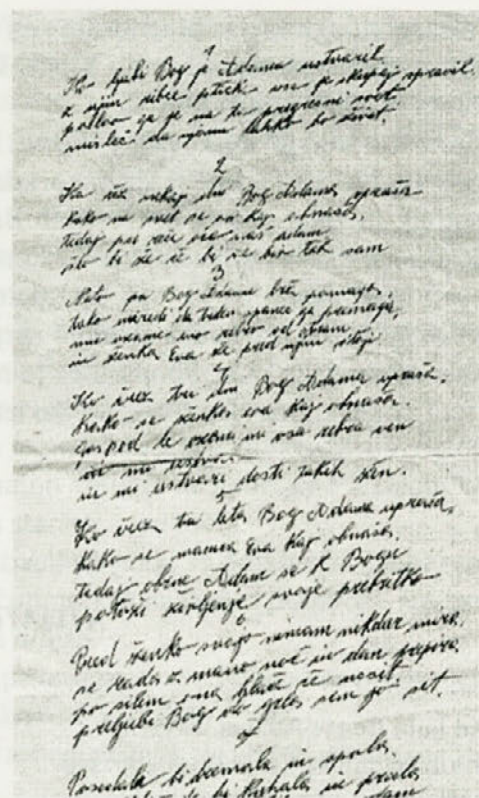 1
Ko ljubi Bog je Adama ustvaril
z njim ribce ptičke vse je skupaj spravil.
potlov ga je na ta pregrešni svet
misleč da njemu lahko bo živet.
2
Ko čez nekaj dni Bog Adama vpraša
kako na svet se on kaj obnaša,
tedaj pa reče oče naš Adam
šlo bi že če bi ne bil tak sam
3
Nato pa Bog Adamu brž pomaga,
tako naredi da trden spanec ga premaga,
mu vzame eno rebro od strani
in ženka Eva že pred njim stoji
4
Ko čez tri dni Bog Adama vpraša.
Kako se ženka eva kaj obnaša.
Gospod le vzemi mi vsa rebra ven
in mi ustvari dosti takih žen.
5
Ko čez tri leta Bog Adama vpraša,
Kako se mamca Eva kaj obnaša,
tedaj obrne Adam se k Bogu
potoži življenje svoje prebritko
6
Pred ženko svojo nimam nikdar mira,
se zades z mano noč in dan prepira,
po silem ona hlače če nosit.
preljubi Bog do grla sem jo sit.
7
Posedala bi dremala in spala,